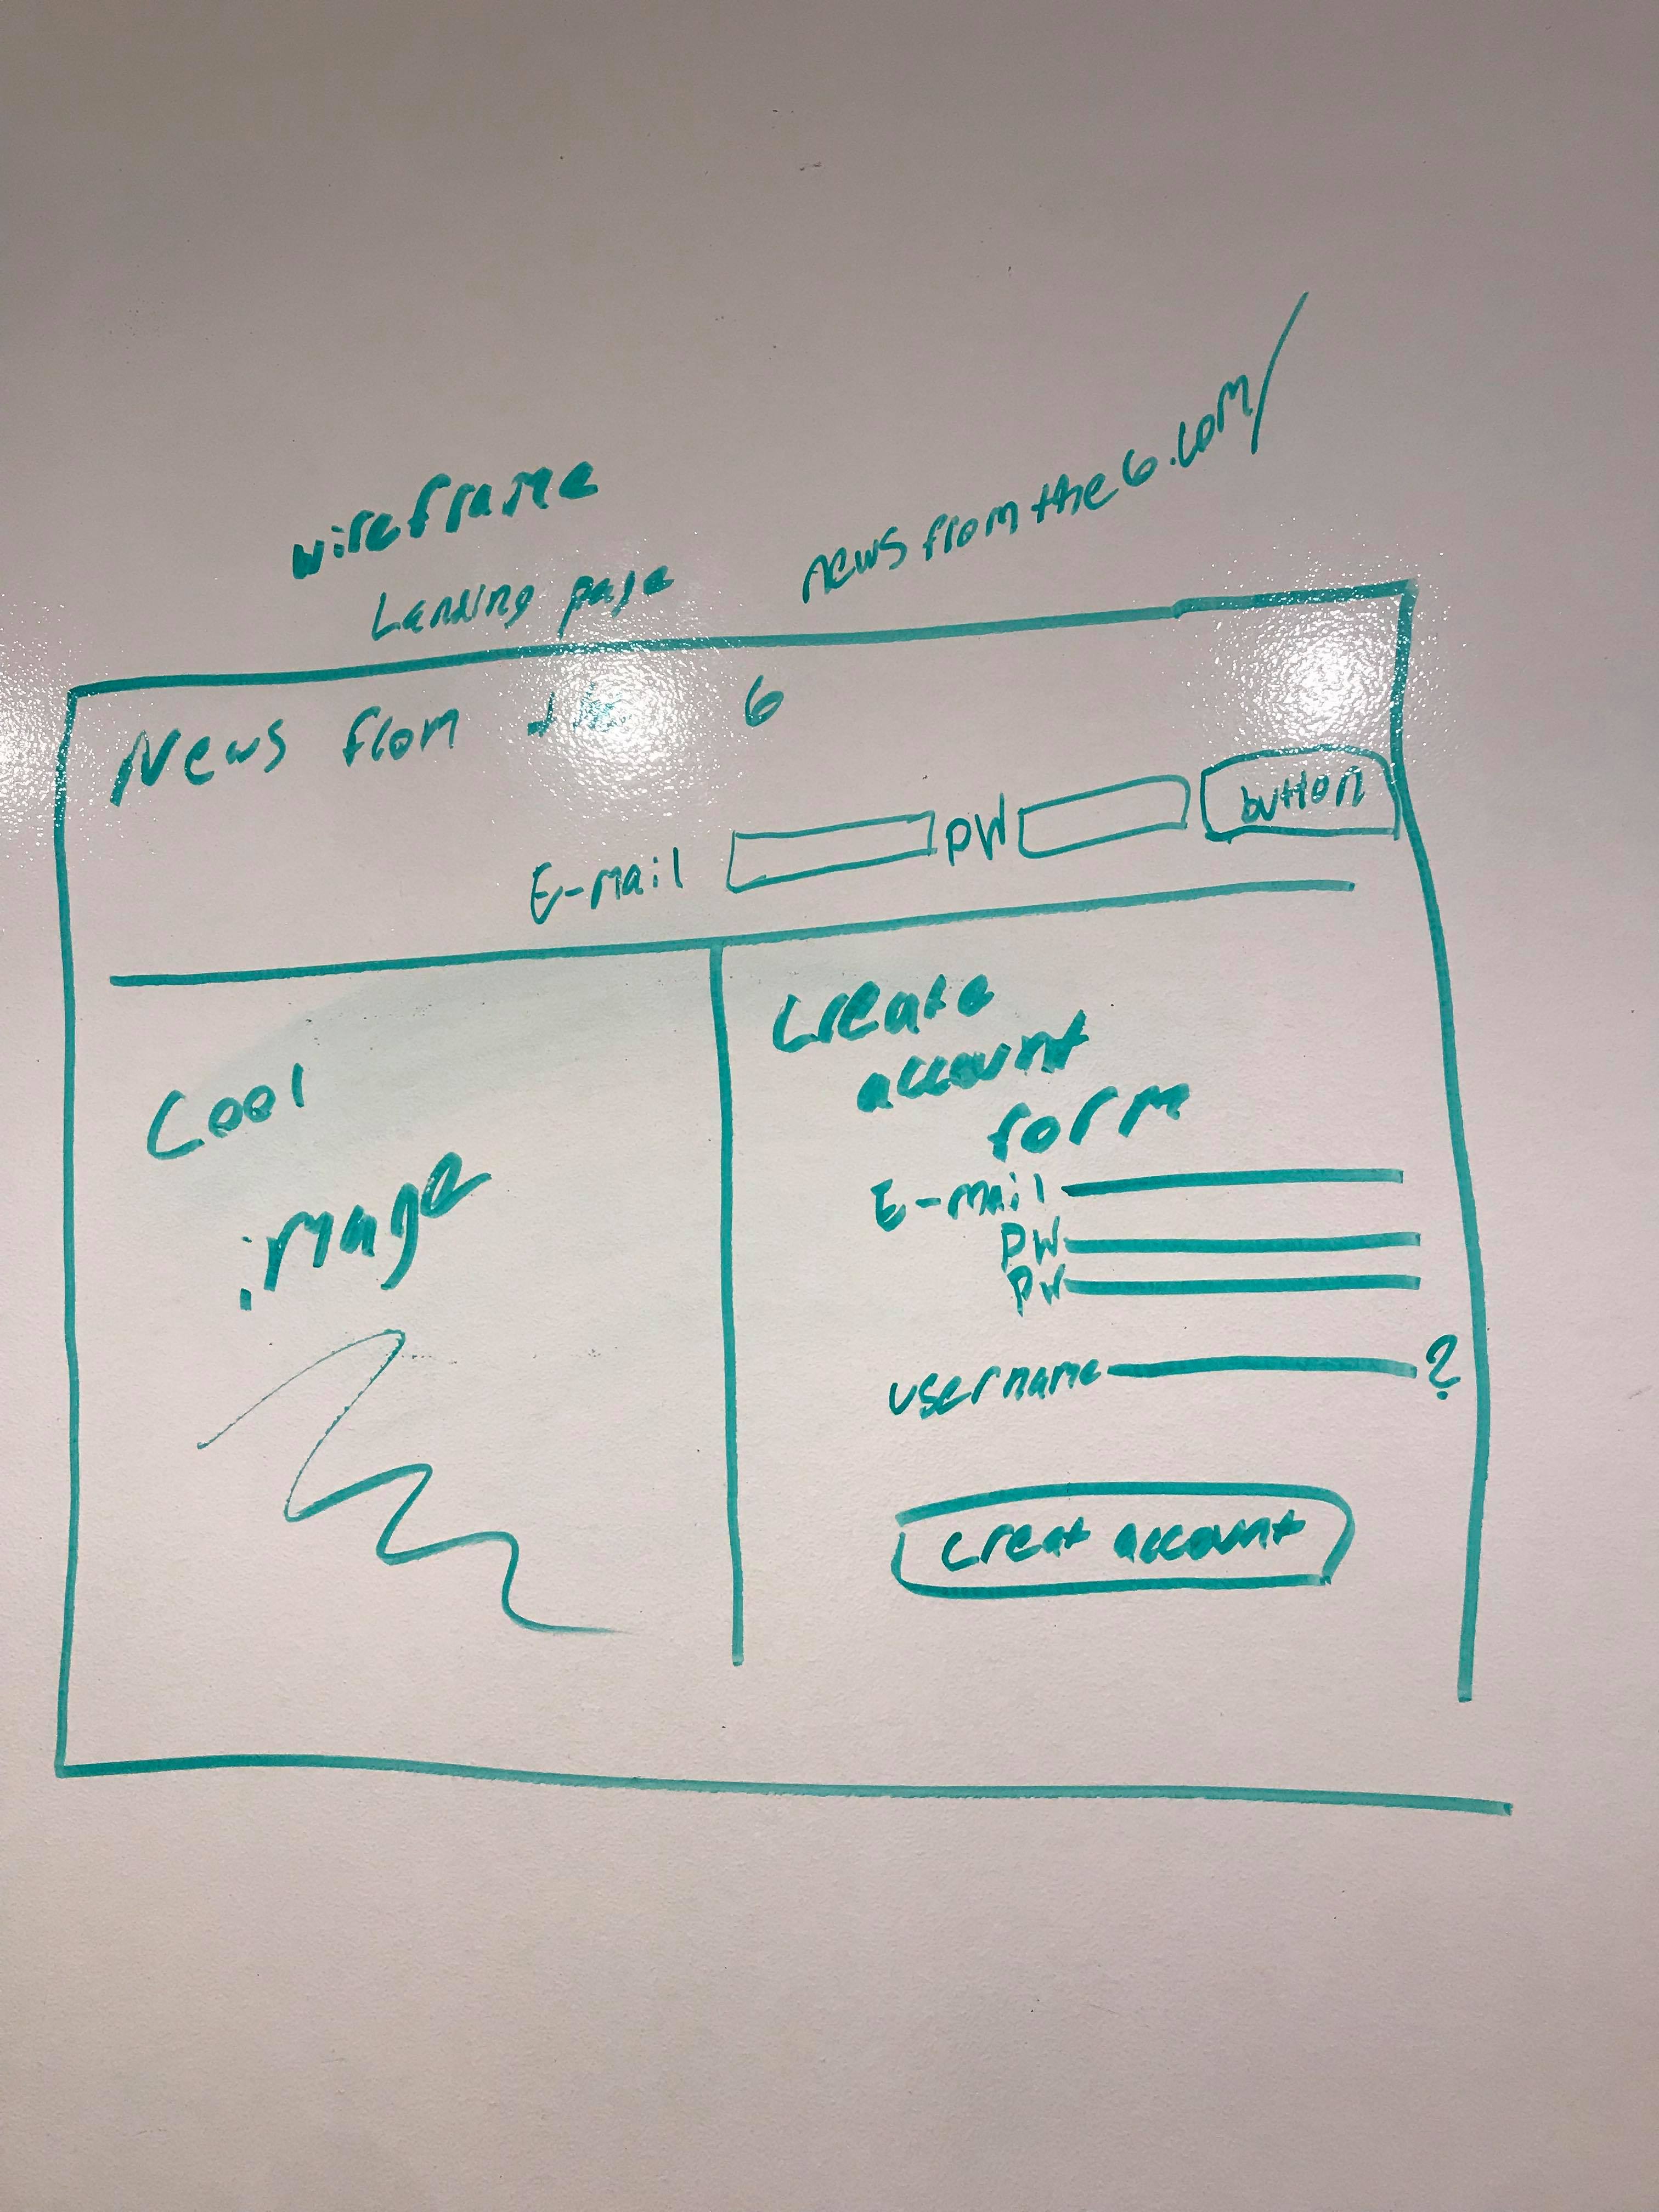 wireframe
Landing page
newsfromthe6.com/
News from the 6
E-mail PW button
Cool
image
Create
account
form
E-mail
PW
PW
username ?
creat account